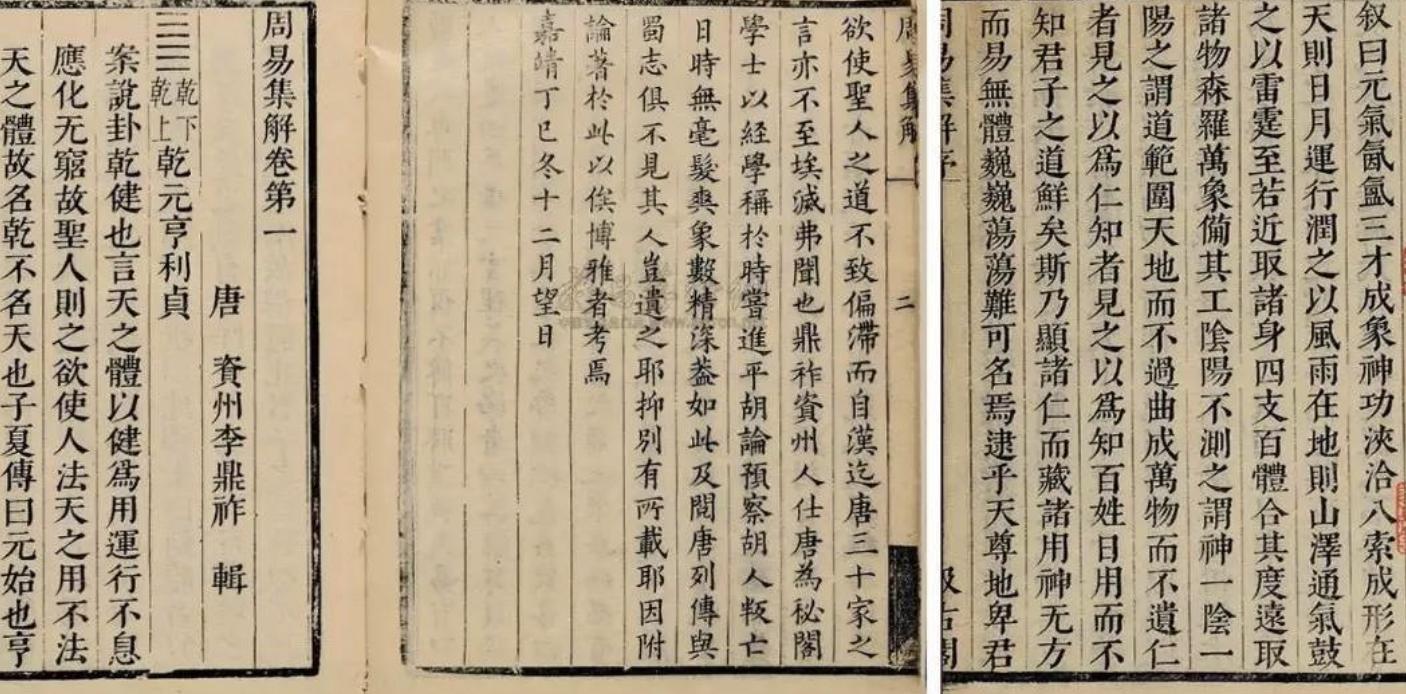 叙曰元氣氤氳三才成象神功浹洽八索成形在
天則日月運行潤之以風雨在地則山澤通氣鼓
之以雷霆至若近取諸身四支百體合其度遠取
諸物森羅萬象備其工陰陽不測之謂神一陰一
陽之謂道範圍天地而不過曲成萬物而不遺仁
者見之以爲仁知者見之以爲知百姓日用而不
知君子之道鮮矣斯乃顯諸仁而藏諸用神无方
而易無體巍巍蕩蕩難可名焉逮乎天尊地卑君
周易集解序
周易集解 二
欲使聖人之道不致偏滯而自漢迄唐三十家之
言亦不至埃滅弗聞也鼎祚資州人仕唐為秘閣
學士以經學稱於時嘗進平胡論預察胡人叛亡
日時無毫髮爽象數精深葢如此及閱唐列傳與
蜀志俱不見其人豈遺之耶抑別有所載耶因附
論著於此以俟博雅者考焉
嘉靖丁巳冬十二月望日
周易集解卷第一
唐 資州李鼎祚 輯
乾下乾上 乾元亨利貞
案說卦乾健也言天之體以健爲用運行不息
應化无窮故聖人則之欲使人法天之用不法
天之體故名乾不名天也子夏傳曰元始也亨